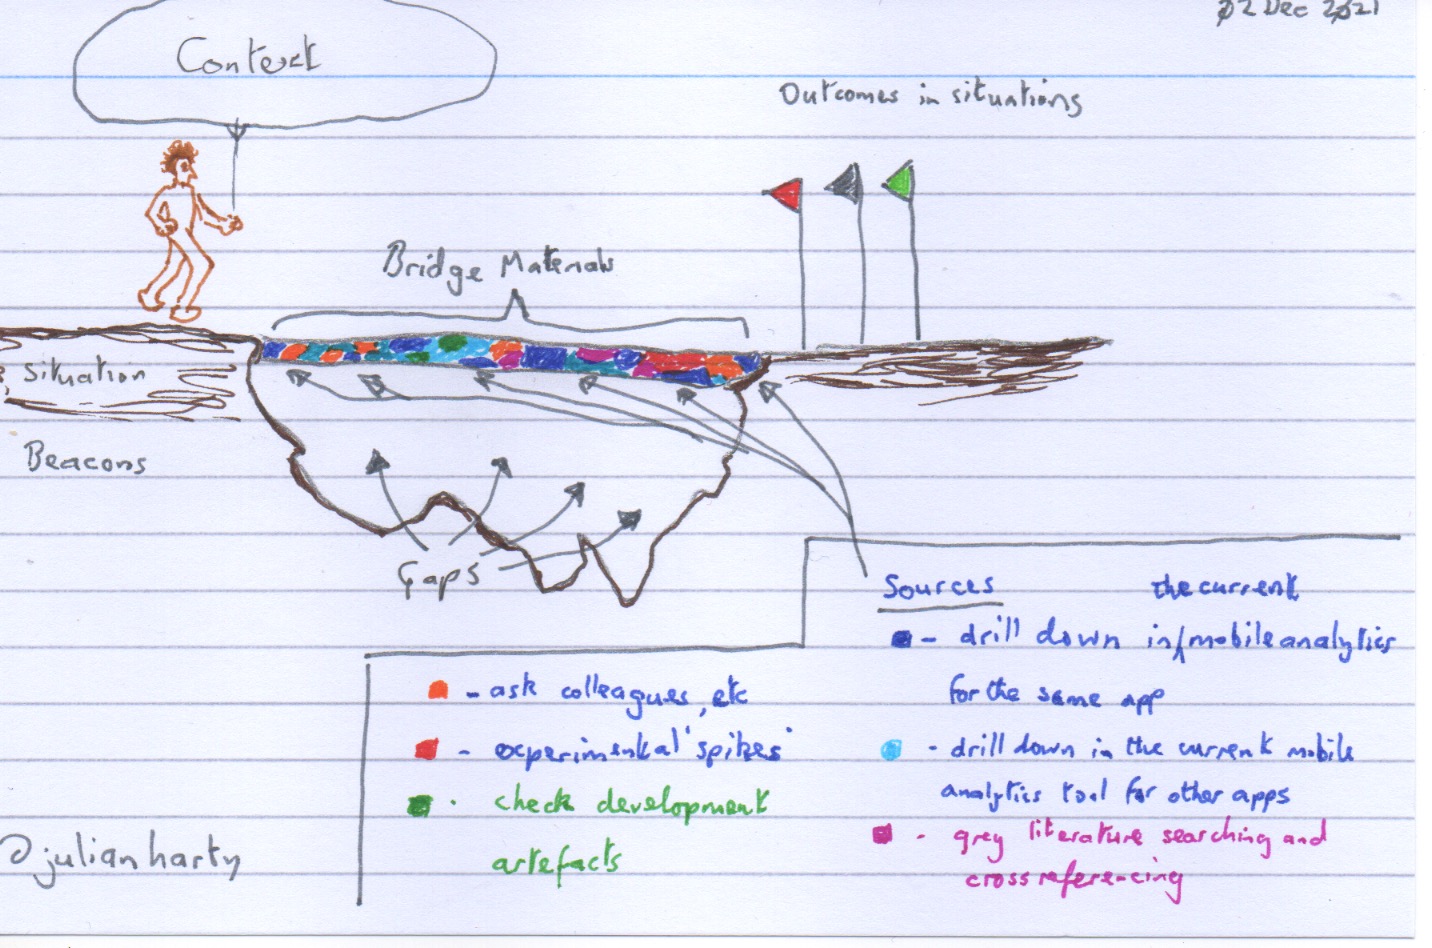 02 Dec 2021
Context
Outcomes in situations
Bridge Materials
Situation
Beacons
Gaps
Sources
the current
- drill down in mobile analytics
for the same app
- drill down in the current mobile
analytics tool for other apps
- grey literature searching and
cross referencing
- ask colleagues, etc
- experimental 'spikes'
- check development
artefacts
@julianharty